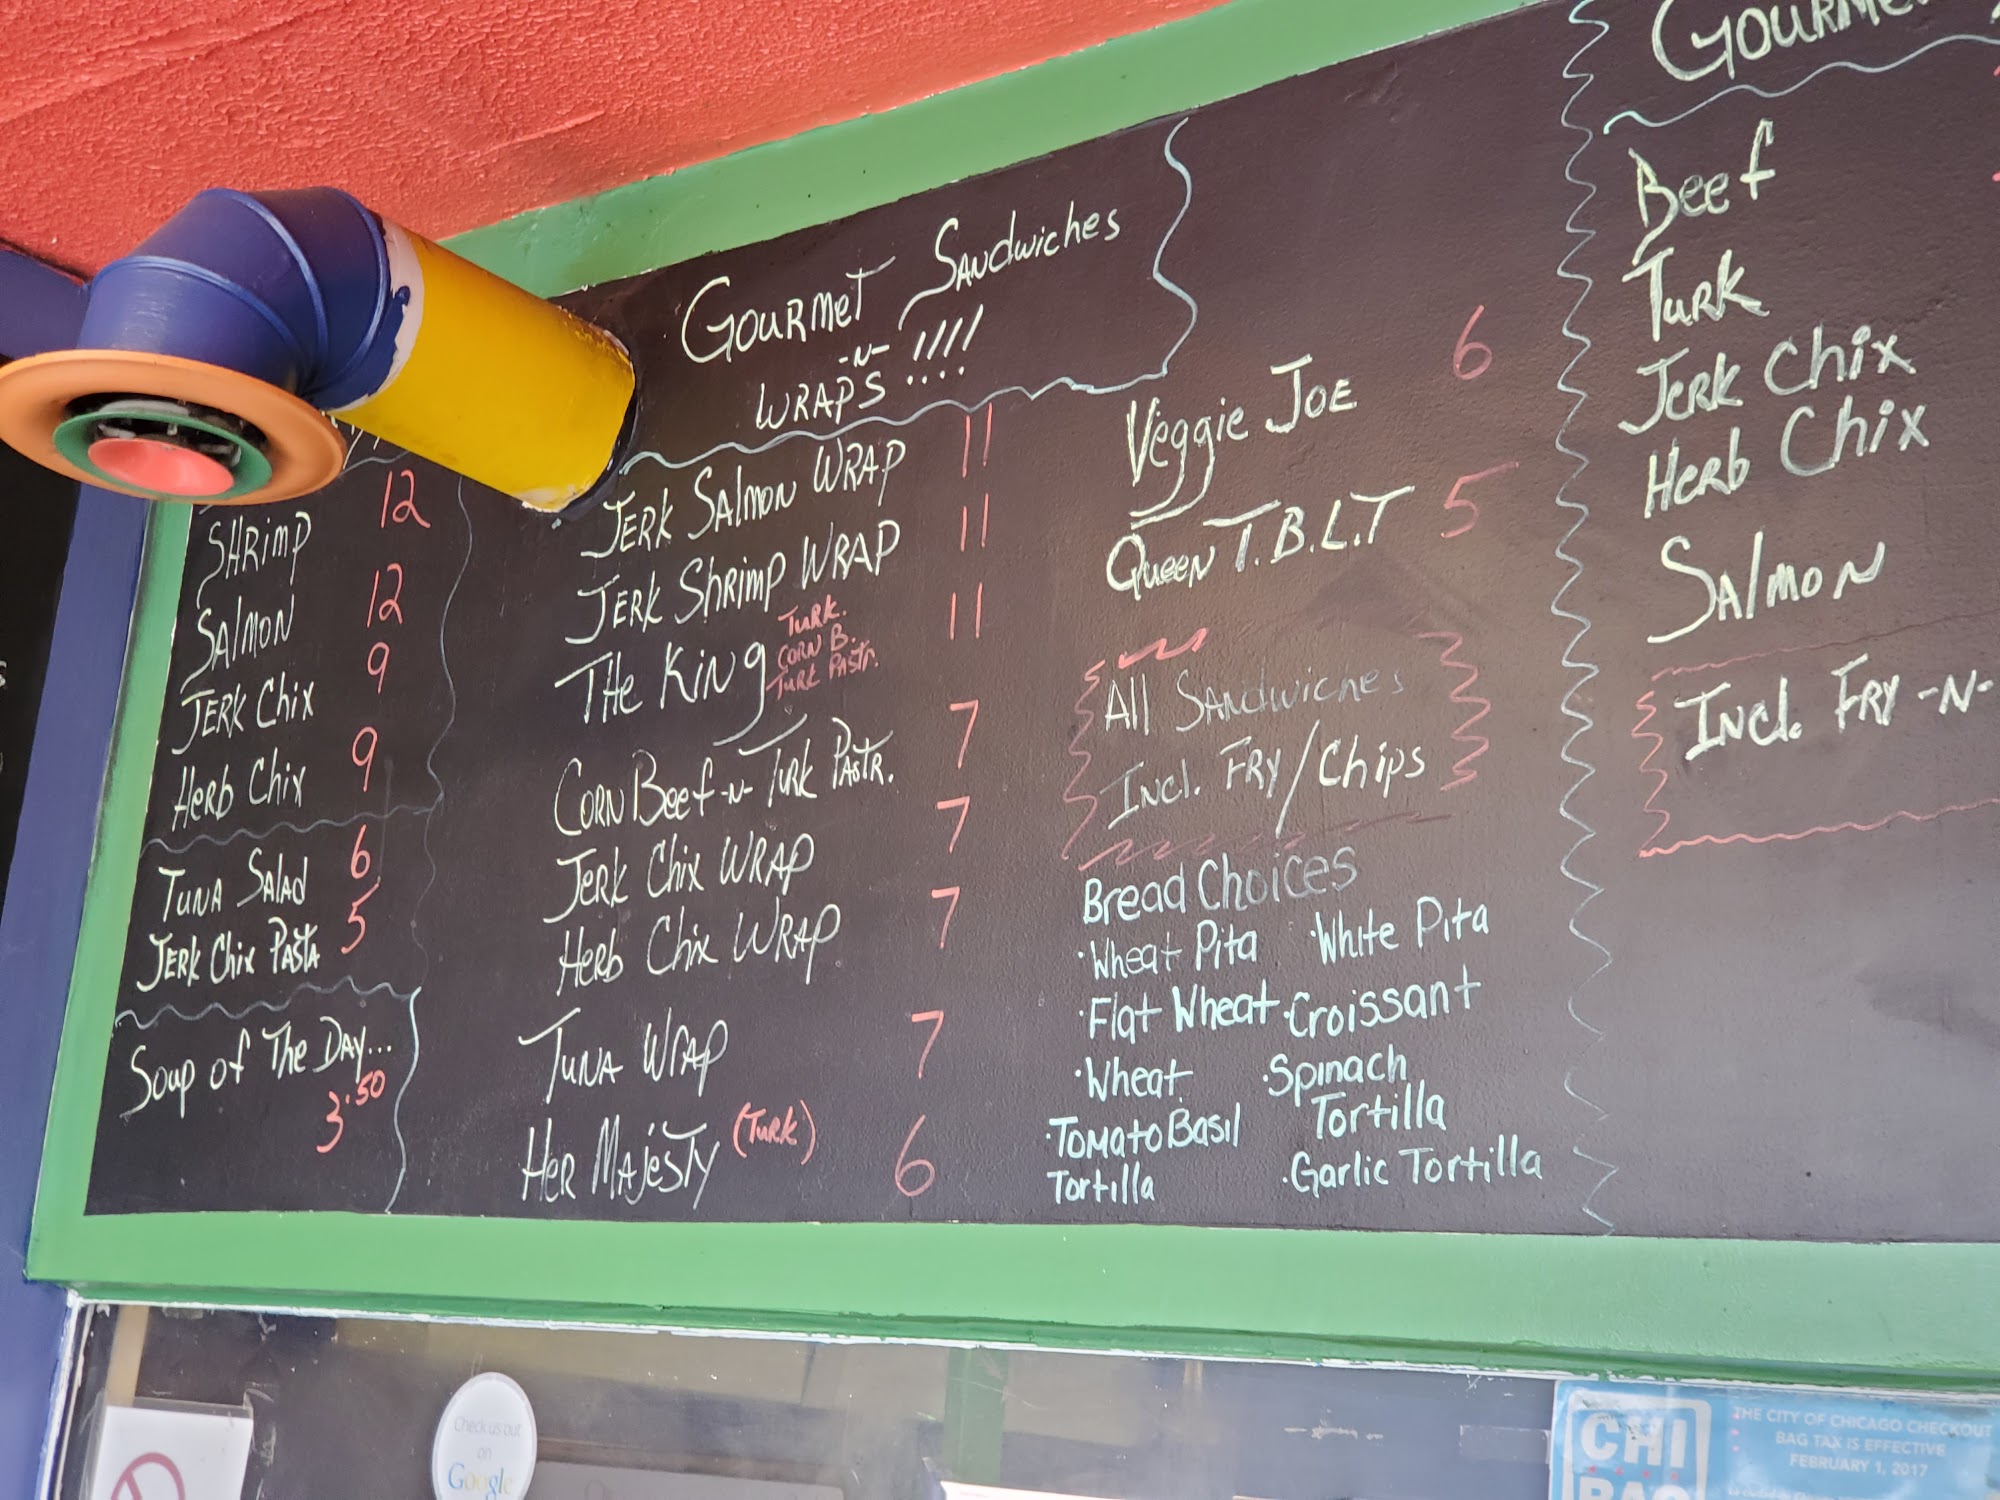 SHRIMP 12
SALMON 12
JERK CHIX 9
HERB CHIX 9
TUNA SALAD 6
JERK CHIX PASTA 5
SOUP OF THE DAY...
3.50
GOURMET SANDWICHES
-N-
WRAPS !!!!
JERK SALMON WRAP 11
JERK SHRIMP WRAP 11
THE KING TURK. 11
CORN B.
TURK PASTR.
CORN BEEF -N- TURK PASTR. 7
JERK CHIX WRAP 7
HERB CHIX WRAP 7
TUNA WRAP 7
HER MAJESTY (TURK) 6
Veggie JOE 6
QUEEN T.B.L.T 5
All SANDWICHES
INCL. FRY/CHIPS
Bread Choices
·Wheat Pita ·White Pita
·Flat Wheat ·Croissant
·Wheat ·Spinach
Tortilla
·Tomato Basil
Tortilla
·Garlic Tortilla
BEEF
TURK
JERK CHIX
HERB CHIX
SALMON
INCL. FRY -N-
Check us out
on
Google
CHI
BAG
THE CITY OF CHICAGO CHECKOUT
BAG TAX IS EFFECTIVE
FEBRUARY 1, 2017